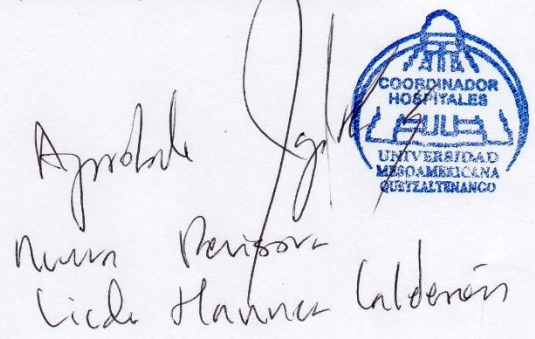 COORDINADOR
HOSPITALES
UNIVERSIDAD
MESOAMERICANA
QUETZALTENANGO
Aprobado
Nueva Revisora
Licda Hannia Calderón